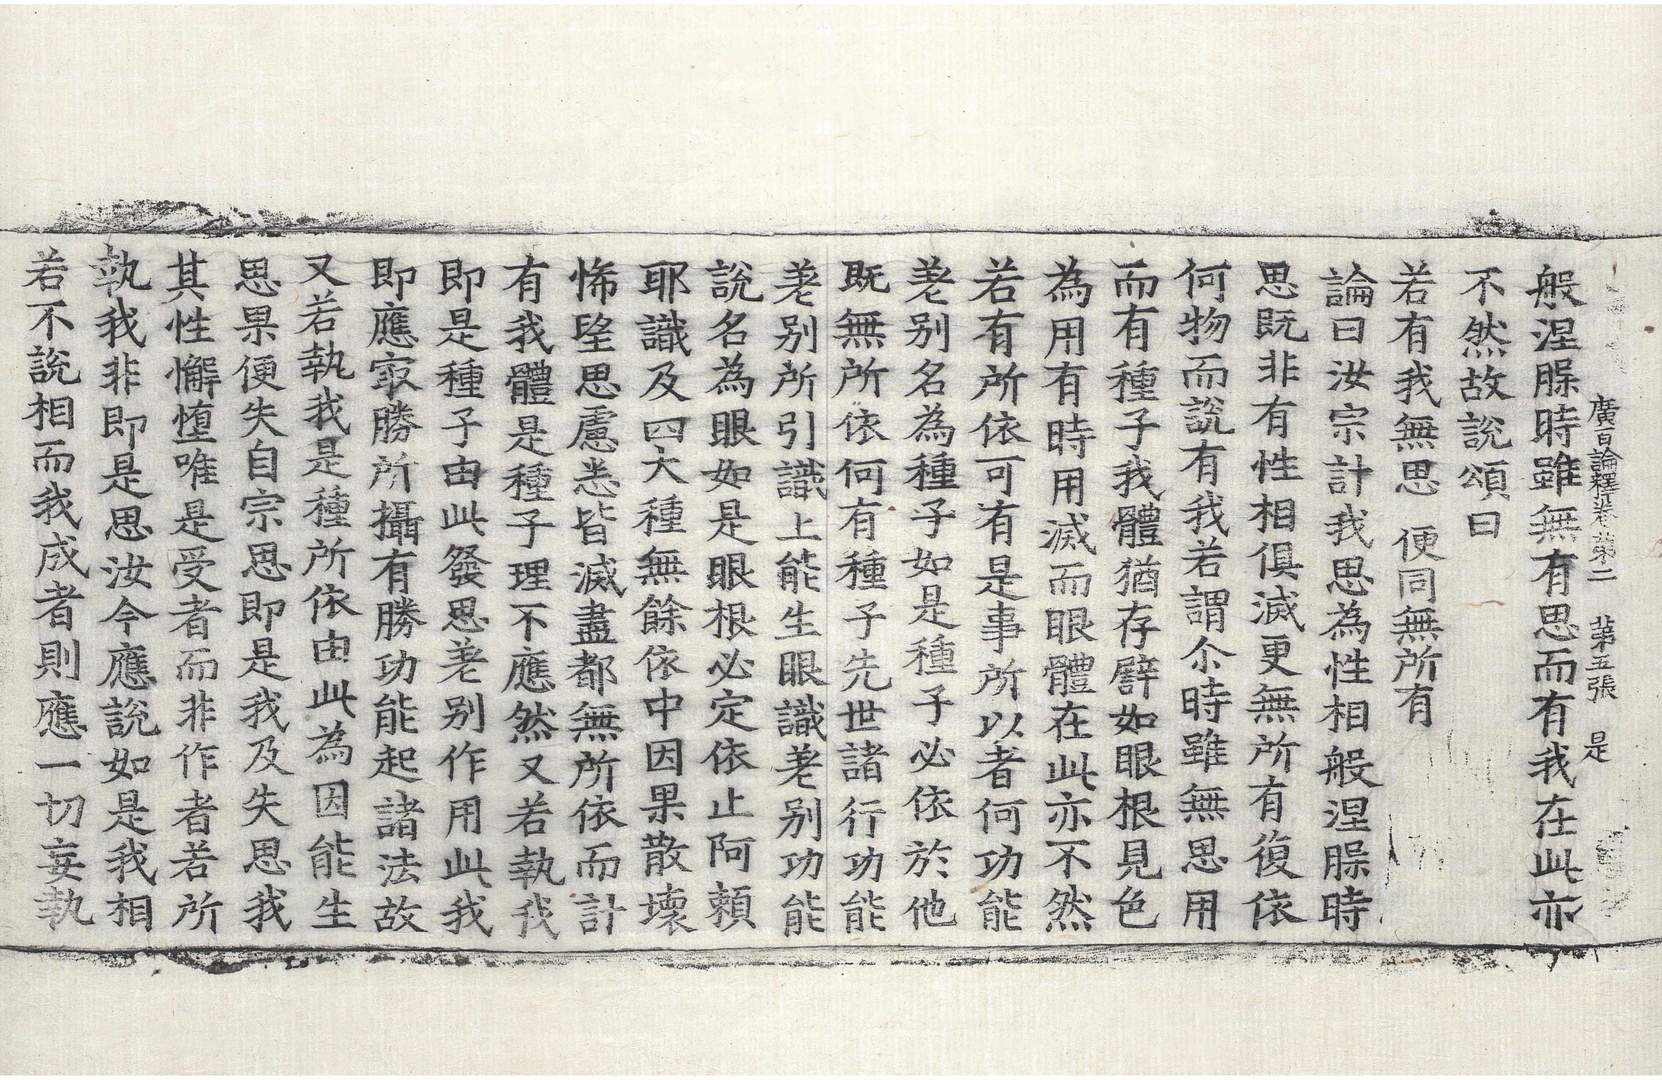 廣百論釋論卷第二　第五張　是
般涅㬷時雖無有思而有我在此亦
不然故說頌曰
若有我無思　便同無所有
論曰汝宗計我思為性相般涅㬷時
思既非有性相俱滅更無所有復依
何物而說有我若謂尒時雖無思用
而有種子我體猶存譬如眼根見色
為用有時用滅而眼體在此亦不然
若有所依可有是事所以者何功能
差別名為種子如是種子必依於他
既無所依何有種子先世諸行功能
差別所引識上能生眼識差別功能
說名為眼如是眼根必定依止阿賴
耶識及四大種無餘依中因果散壞
悕望思慮悉皆滅盡都無所依而計
有我體是種子理不應然又若執我
即是種子由此發思差別作用此我
即應㝡勝所攝有勝功能起諸法故
又若執我是種所依由此為因能生
思果便失自宗思即是我及失思我
其性懈墮唯是受者而非作者若所
執我非即是思汝今應說如是我相
若不說相而我成者則應一切妄執